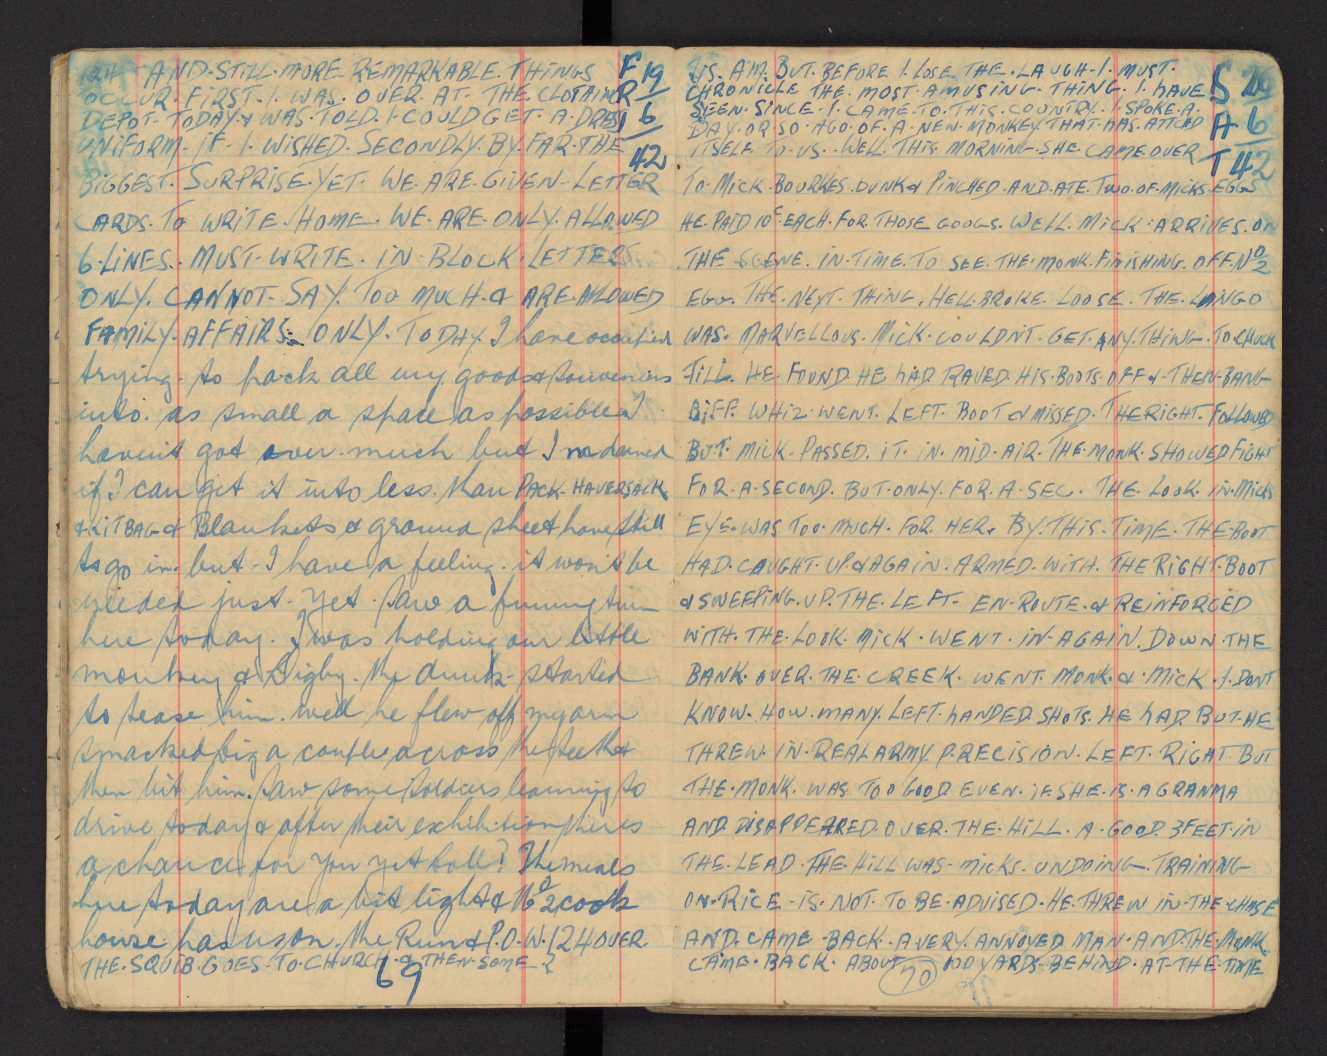 124 AND. STILL. MORE REMARKABLE. THINGS
OCCUR. FIRST. I. WAS. OVER. AT. THE. CLOTHING
DEPOT. TODAY & WAS. TOLD. I. COULD GET. A. DRESS
UNIFORM. IF. I. WISHED. SECONDLY. BY. FAR. THE
FRI 19/6/42
BIGGEST. SURPRISE. YET. WE. ARE. GIVEN. LETTER
CARDS. TO WRITE. HOME. WE. ARE. ONLY. ALLOWED
6. LINES. MUST. WRITE. IN. BLOCK. LETTERS
ONLY. CANNOT. SAY. TOO MUCH. & ARE ALLOWED
FAMILY. AFFAIRS. ONLY. TODAY I have occupied
trying. to pack all my goods & souvenirs
into. as small a space as possible I
havent got over much but I
if I can get it into less than PACK. HAVERSACK
& KIT BAG & Blankets & ground sheet have still
to go in. but. I have a feeling. it won't be
needed just. yet. Saw a funny turn
here today. I was holding our little
monkey & Rigby. the drunk. started
to tease him. well he flew off my arm
smacked Rig a couple across the teeth &
then bit him. Saw some soldiers learning to
drive today & after their exhibition there is
a chance for you yet Doll? The meals
here today are a bit light & No 2 cook
house has us on the Run & P.O.W. 124 OVER.
THE. SQUIB. GOES. TO. CHURCH. & THEN. SOME?
69
US. AM. BUT. BEFORE I. LOSE THE. LAUGH. I. MUST.
CHRONICLE THE. MOST. AMUSING. THING. I. HAVE
SEEN. SINCE. I. CAME. TO. THIS. COUNTRY. I. SPOKE. A.
DAY. OR. SO. AGO. OF. A. NEW. MONKEY. THAT. HAS. ATTCHD
ITSELF TO. US. WELL. THIS. MORNING. SHE. CAME. OVER
SAT 20/6/42
TO. MICK. BOURKES. BUNK & PINCHED. AND. ATE. TWO. OF. MICKS. EGGS
HE. PAID 10c EACH. FOR. THOSE GOOGS. WELL. MICK. ARRIVES. ON
THE SCENE. IN. TIME. TO SEE. THE. MONK. FINISHING. OFF. No 2
EGG. THE. NEXT. THING. HELL. BROKE. LOOSE. THE. LINGO
WAS. MARVELLOUS. MICK. COULDNT. GET. ANY. THING. TO. CHUCK
TILL. HE. FOUND. HE HAD RAVED. HIS. BOOTS. OFF. & THEN. BANG
BIFF. WHIZ. WENT. LEFT. BOOT & MISSED. THE RIGHT. FOLLOWED
BUT. MICK. PASSED. IT. IN. MID. AIR. THE. MONK. SHOWED FIGHT
FOR. A. SECOND. BUT. ONLY. FOR. A. SEC. THE. LOOK. IN. MICKS
EYE. WAS. TOO. MUCH. FOR. HER. BY. THIS. TIME. THE. BOOT
HAD. CAUGHT. UP. & AGAIN. ARMED. WITH. THE RIGHT. BOOT
& SWEEPING. UP. THE. LEFT. EN. ROUTE. & REINFORCED
WITH. THE. LOOK. MICK. WENT. IN. AGAIN. DOWN. THE
BANK. OVER. THE. CREEK. WENT. MONK. & MICK. I. DONT
KNOW. HOW. MANY. LEFT. HANDED. SHOTS. HE HAD. BUT. HE
THREW. IN. REAL ARMY. PRECISION. LEFT. RIGHT BUT
THE. MONK. WAS. TOO GOOD EVEN. IF SHE. IS. A GRANMA
AND. DISAPPEARED. OVER. THE. HILL. A. GOOD. 3 FEET. IN
THE. LEAD. THE. HILL WAS. MICKS. UNDOING. TRAINING
ON. RICE. IS. NOT. TO BE. ADVISED. HE. THREW IN. THE. CHASE
AND. CAME. BACK. A VERY. ANNOYED MAN. AND. THE. MONK
CAME. BACK. ABOUT 100 YARDS. BEHIND. AT. THE. TIME
70